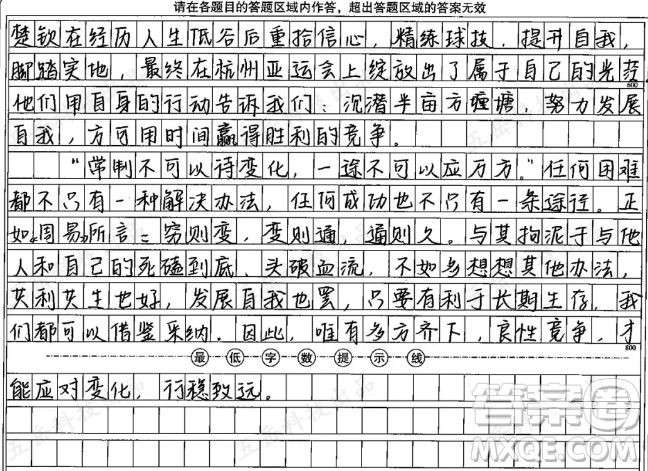 请在各题目的答题区域内作答，超出答题区域的答案无效
楚钦在经历人生低谷后重拾信心，精练球技，提升自我，
脚踏实地，最终在杭州亚运会上绽放出了属于自己的光芒。
600
他们用自身的行动告诉我们：沉潜半亩方塘，努力发展
自我，方可用时间赢得胜利的竞争。
“常制不可以待变化，一途不可以应万方。”任何困难
都不只有一种解决办法，任何成功也不只有一条途径。正
如《周易》所言：穷则变，变则通，通则久。与其拘泥于与他
人和自己的死磕到底、头破血流，不如多想想其他办法，
共利共生也好，发展自我也罢，只要有利于长期生存，我
们都可以借鉴采纳。因此，唯有多方齐下，良性竞争，才
800
最低字数提示线
能应对变化，行稳致远。
答案圈
MXQE.COM